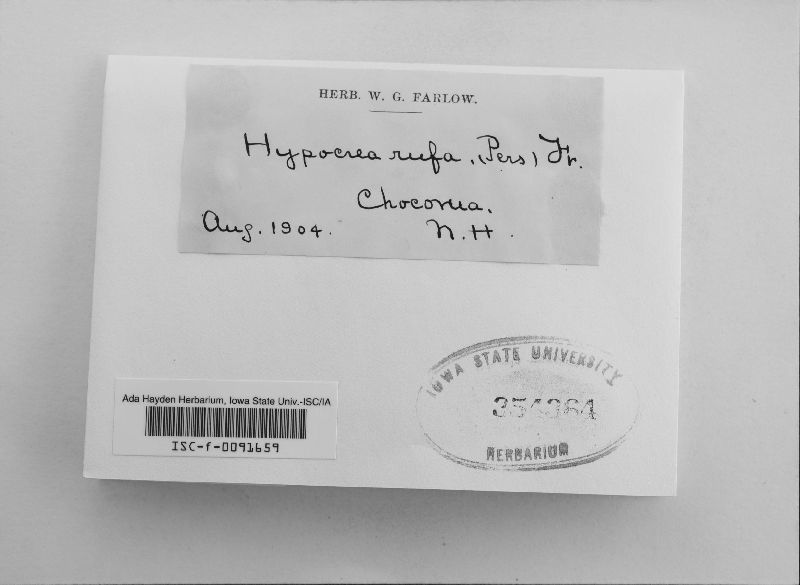 HERB. W. G. FARLOW.
Hypocrea rufa, (Pers) Fr.
Chocorua.
Aug. 1904. N.H.
IOWA STATE UNIVERSITY
354364
HERBARIUM
Ada Hayden Herbarium, Iowa State Univ.-ISC/IA
ISC-f-0091659